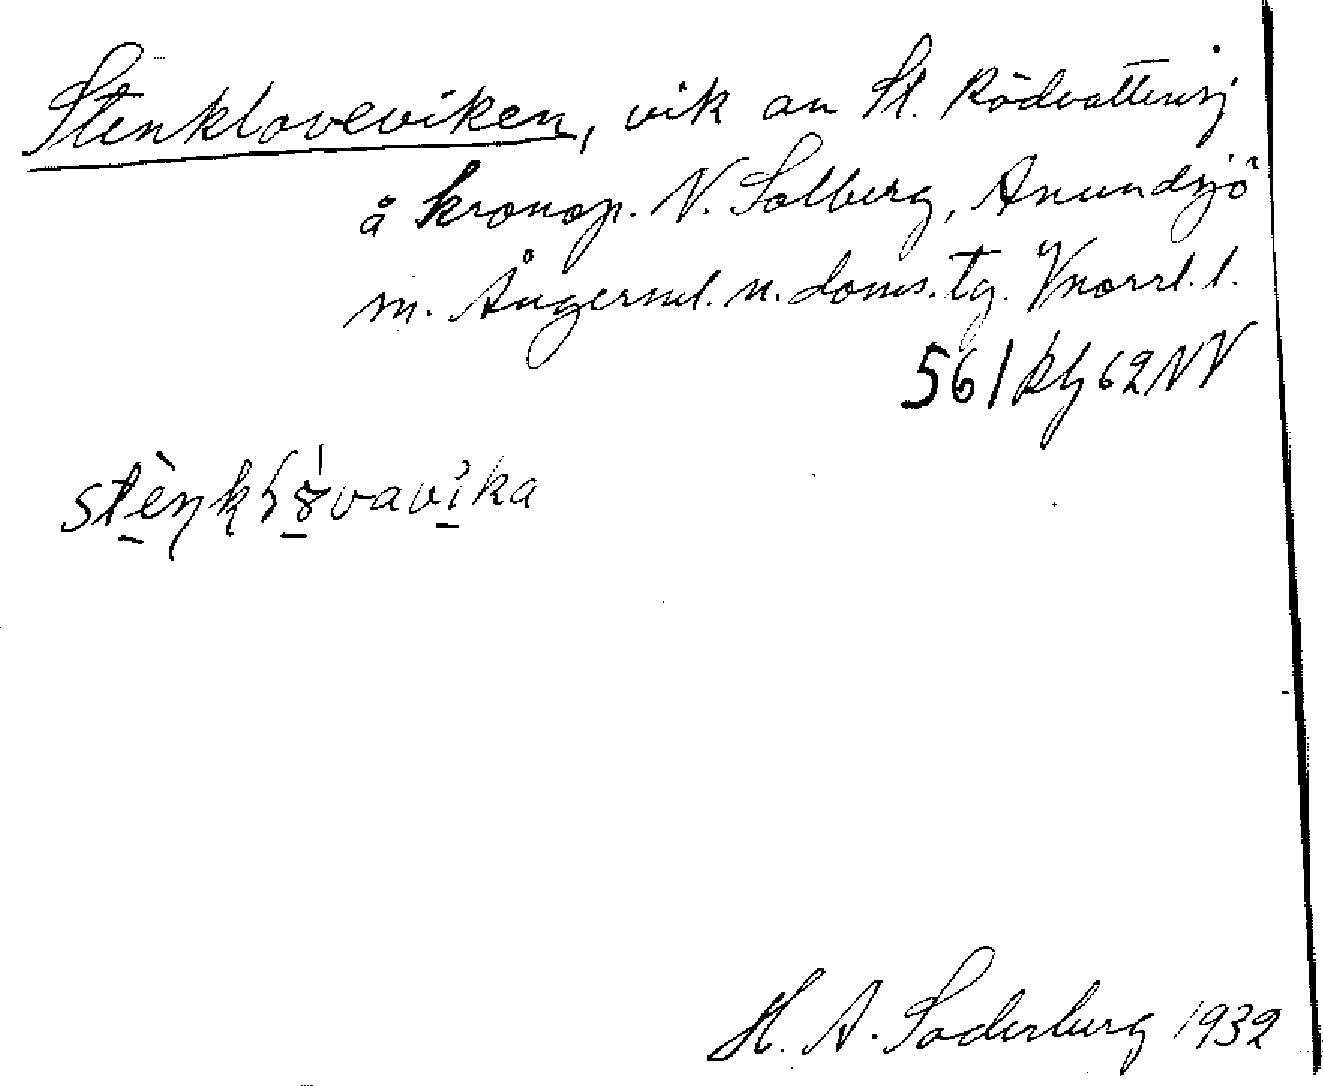 Stenkloveviken, vik av St. Rödvattensj
å kronop. N. Solberg, Anundsjö
m. Ångerml. n. doms. tg. Vnorrl. l.
561 62 NV
H. A. Söderberg 1932